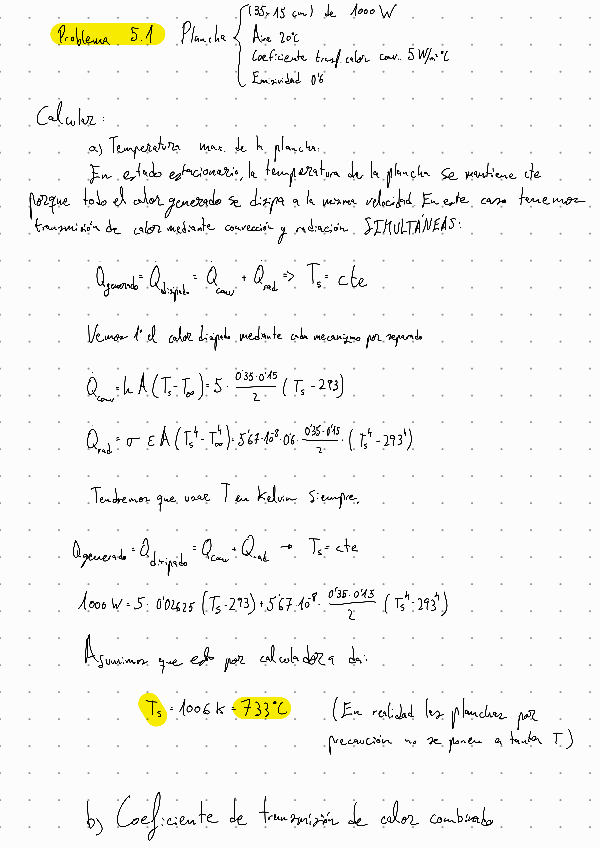 Problema 5.1 Plancha (35×15 cm) de 1000 W
Aire 20°C
Coeficiente trasf calor conv. 5 W/m²°C
Emisividad 0'6
Calcular:
a) Temperatura max. de la plancha.
En estado estacionario, la temperatura de la plancha se mantiene cte
porque todo el calor generado se disipa a la misma velocidad. En este caso tenemos
transmisión de calor mediante convección y radiación SIMULTÁNEAS:
Q̇generado = Q̇disipado = Q̇conv + Q̇rad => Ts = cte
Vemos 1º el calor disipado mediante cada mecanismo por separado
Q̇conv = h A (Ts - T∞) = 5 · 0'35·0'15/2 (Ts - 293)
Q̇rad = σ ε A (Ts⁴ - T∞⁴) = 5'67·10⁸·0'6 · 0'35·0'15/2 · (Ts⁴ - 293⁴)
Tendremos que usar T en Kelvin siempre.
Q̇generado = Q̇disipado = Q̇conv + Q̇rad → Ts = cte
1000 W = 5 · 0'02625 (Ts - 293) + 5'67·10⁻⁸ · 0'35·0'15/2 (Ts⁴ - 293⁴)
Asumimos que esto por calculadora da:
Ts = 1006 K = 733°C (En realidad las planchas por
precaución no se ponen a tanta T)
b) Coeficiente de transmisión de calor combinado